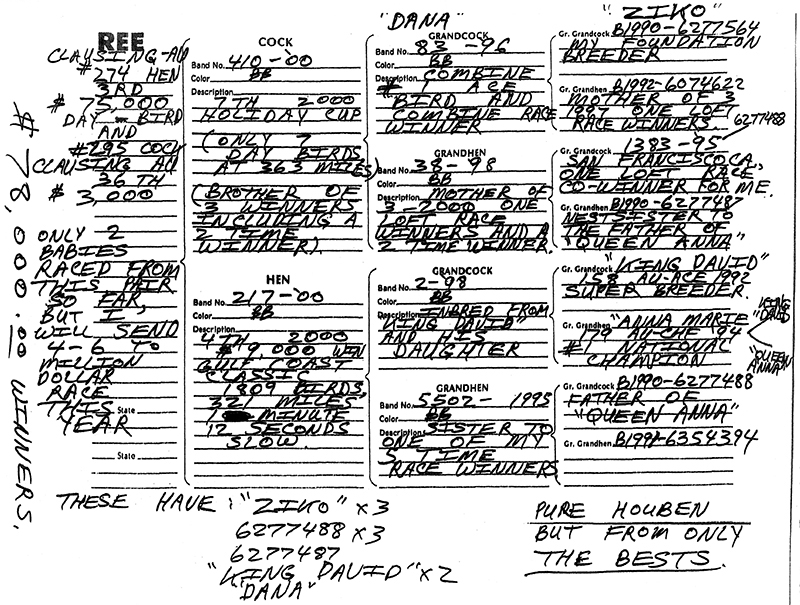 REE
CLAUSING-AU
#274 HEN
3RD
$75,000
DAY - BIRD
AND
#295 COCK
CLAUSING AU
36TH
$3,000
ONLY 2
BABIES
RACED FROM
THIS PAIR
SO FAR,
BUT I
WILL SEND
4-6 TO
MILLION
DOLLAR
RACE
THIS
State
YEAR
State
$78,000.00 WINNERS.
COCK
Band No. 410-'00
Color BB
Description
7TH 2000
HOLIDAY CUP
(ONLY 7
DAY BIRDS
AT 363 MILES)
(BROTHER OF
3 WINNERS
INCLUDING A
2 TIME
WINNER)
HEN
Band No. 217-'00
Color BB
Description
4TH 2000
$19,000 WIN
GULF COAST
CLASSIC
1809 BIRDS,
321 MILES,
1 MINUTE
12 SECONDS
SLOW.
"DANA"
GRANDCOCK
Band No. 83-96
Color BB
Description COMBINE
#1 ACE
BIRD AND
COMBINE RACE
WINNER
GRANDHEN
Band No. 38-98
Color BB
Description MOTHER OF
3-2000 ONE
LOFT RACE
WINNERS AND A
2 TIME WINNER.
GRANDCOCK
Band No. 2-98
Color BB
Description INBRED FROM
"KING DAVID"
AND HIS
DAUGHTER
GRANDHEN
Band No. 5502-1995
Color BB
Description SISTER TO
ONE OF MY
5 TIME
RACE WINNERS
"ZIKO"
Gr. Grandcock B1990-6277564
MY FOUNDATION
BREEDER
Gr. Grandhen B1992-6074622
MOTHER OF 3
1997 ONE LOFT
RACE WINNERS.
6277488
Gr. Grandcock 1383-95
SAN FRANCISCO CA,
ONE LOFT RACE
CO-WINNER FOR ME.
Gr. Grandhen B1990-6277487
NESTSISTER TO
THE FATHER OF
"QUEEN ANNA"
"KING DAVID"
Gr. Grandcock
158 AU-ACE 1992
SUPER BREEDER.
KING DAVID
"QUEEN ANNA"
Gr. Grandhen "ANNA MARIE"
179 AU-CHE '94
#1 NATIONAL
CHAMPION
Gr. Grandcock B1990-6277488
FATHER OF
"QUEEN ANNA"
Gr. Grandhen B1991-6354394
THESE HAVE: "ZIKO" x3
6277488 x3
6277487
"KING DAVID" x2
"DANA"
PURE HOUBEN
BUT FROM ONLY
THE BESTS.